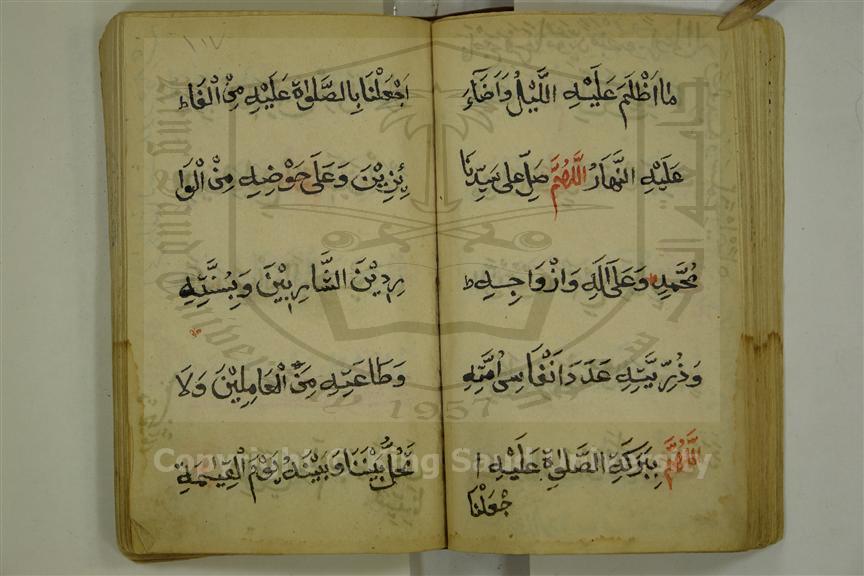 مَا اَظْلَمَ عَلَيْهِ اللَّيْلُ وَاَضَاءَ
عَلَيْهِ النَّهَارُ اَللّٰهُمَّ صَلِّ عَلٰى سَيِّدِنَا
مُحَمَّدٍ وَعَلٰى اٰلِهِ وَاَزْوَاجِهِ ط
وَذُرِّيَّتِهِ عَدَدَ اَنْفَاسِ اُمَّتِهِ
اَللّٰهُمَّ بِبَرَكَةِ الصَّلٰوةِ عَلَيْهِ ا
جْعَلْنَا
١١٧
اجْعَلْنَا بِالصَّلٰوةِ عَلَيْهِ مِنَ الْفَا
ئِزِيْنَ وَعَلٰى حَوْضِهِ مِنَ الْوَا
رِدِيْنَ الشَّارِبِيْنَ وَبِسُنَّتِهِ
وَطَاعَتِهِ مِنَ الْعَامِلِيْنَ وَلَا
تَحُلْ بَيْنَنَا وَبَيْنَهُ يَوْمَ الْقِيٰمَةِ
1957
Copyright © King Saud University